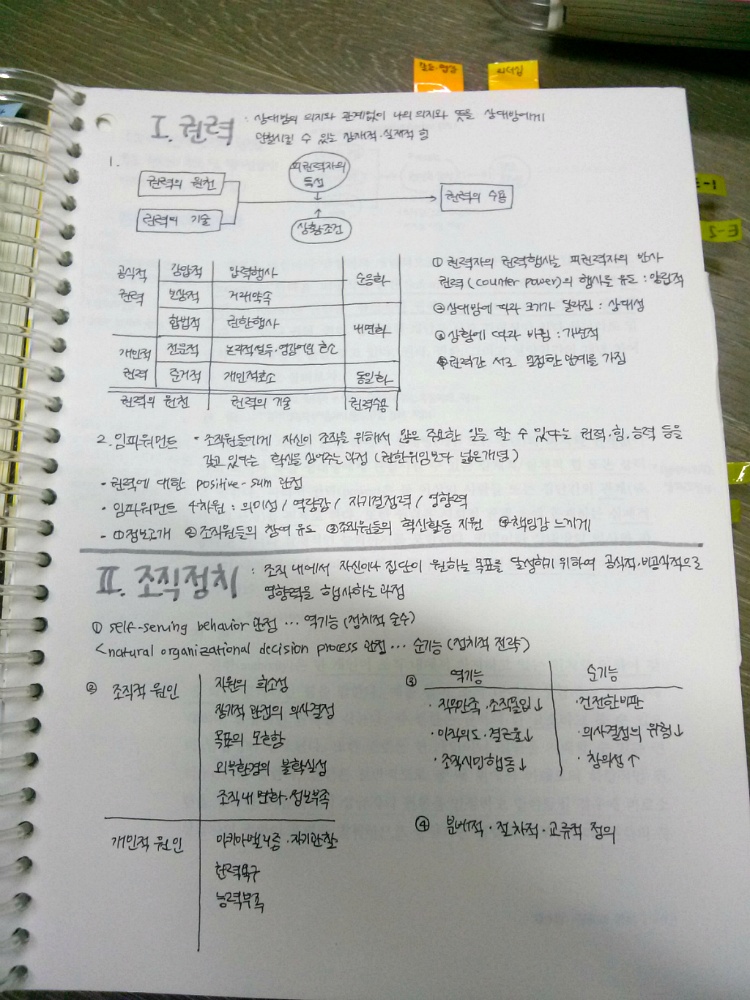 리더십
E-1
I. 권력 : 상대방의 의지와 관계없이 나의 의지와 뜻을 상대방에게
관철시킬 수 있는 잠재적·실재적 힘
1.
권력의 원천
권력의 기술
피권력자의
특성
상황조건
권력의 수용
공식적 강압적 압력행사 순응화
권력 보상적 거래약속
합법적 권한행사 내면화
개인적 전문적 논리적설득·영감어린 호소
권력 준거적 개인적호소 동일화
권력의 원천 권력의 기술 권력수용
① 권력자의 권력행사는 피권력자의 반사
권력(counter power)의 행사를 유도 : 양립적
②상대방에 따라 크기가 달라짐 : 상대성
③상황에 따라 바뀜 : 가변적
④권력간 서로 밀접한 관계를 가짐
2. 임파워먼트 · 조직원들에게 자신이 조직을 위해서 많은 중요한 일을 할 수 있다는 권력·힘·능력 등을
갖고 있다는 확신을 심어주는 과정 (권한위임보다 넓은개념)
· 권력에 대한 positive-sum 관점
· 임파워먼트 4차원 : 의미성 / 역량감 / 자기결정력 / 영향력
· ①정보공개 ②조직원들의 참여 유도 ③조직원들의 혁신활동 지원 ④책임감 느끼게
II. 조직정치 : 조직 내에서 자신이나 집단이 원하는 목표를 달성하기 위하여 공식적·비공식적으로
영향력을 행사하는 과정
① self-serving behavior 관점 ... 역기능 (정치적 술수)
< natural organizational decision process 관점 ... 순기능 (정치적 전략)
② 조직적 원인 자원의 희소성
장기적 관점의 의사결정
목표의 모호함
외부환경의 불확실성
조직내 변화·정보부족
개인적 원인 마키아벨리즘·자기관찰
권력욕구
능력부족
③ 역기능 순기능
· 직무만족·조직몰입↓ ·건전한비판
· 이직의도·결근율↓ ·의사결정의 위험↓
· 조직시민행동↓ ·창의성↑
④ 분배적·절차적·교류적 정의